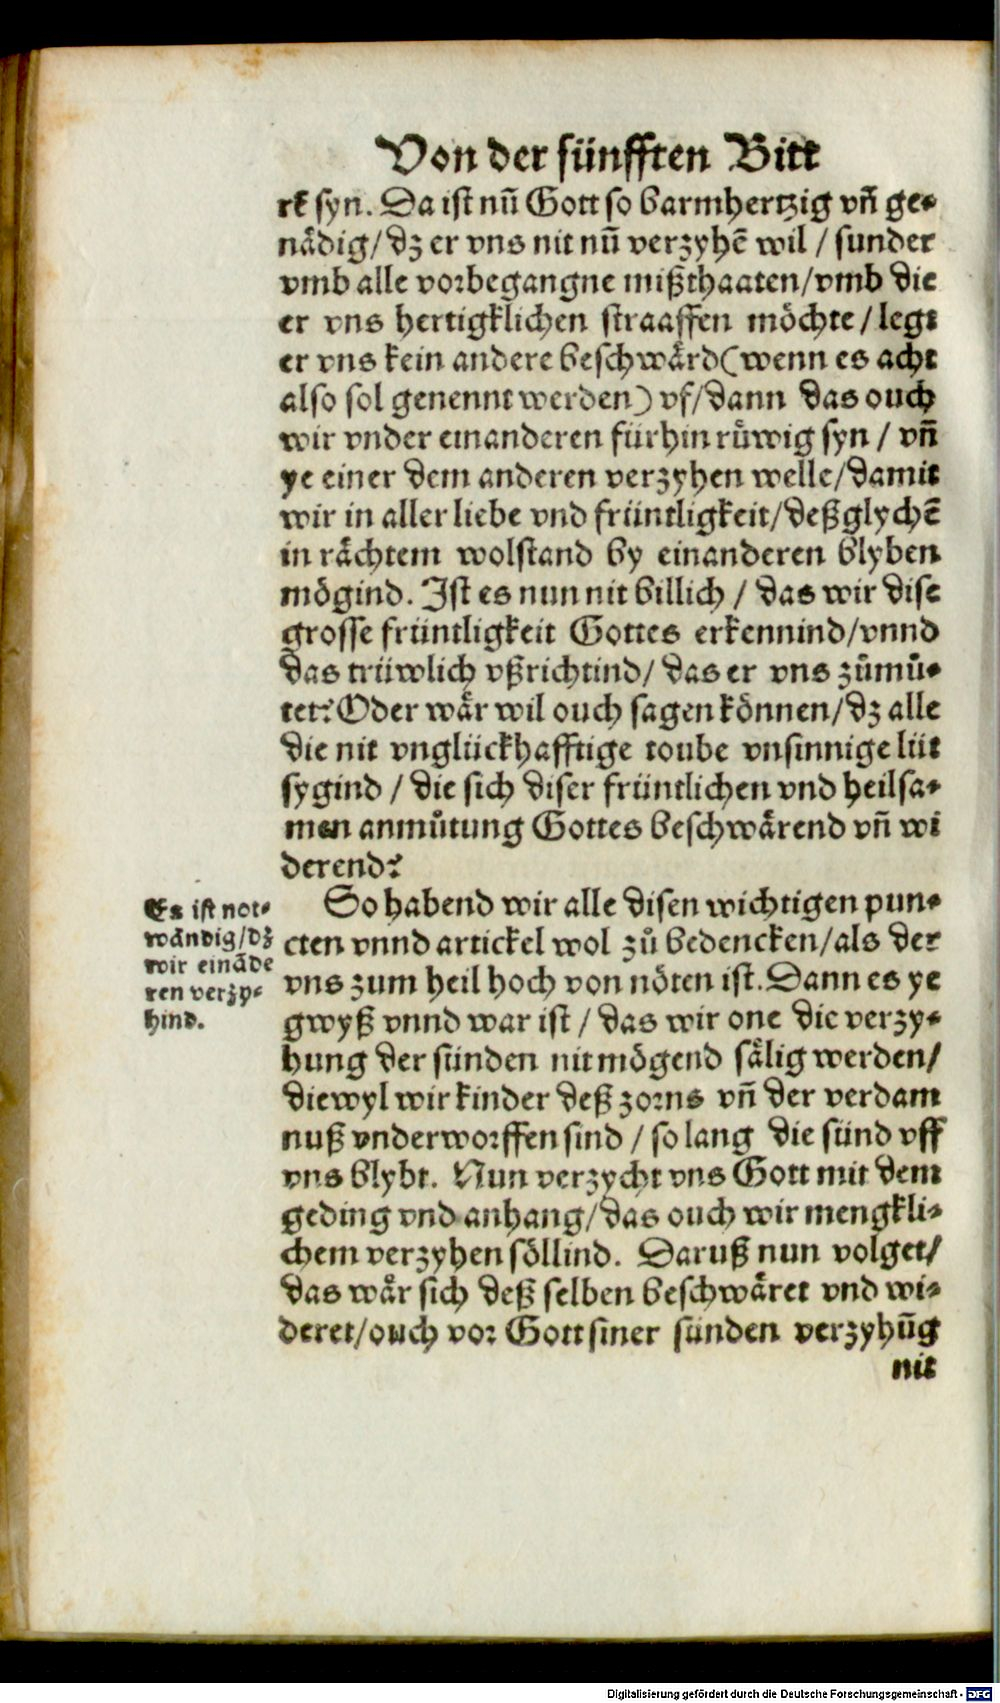 Von der fünfften Bitt
rk syn. Da ist nun̄ Gott so barmhertzig vn̄ ge⸗
nådig/dz er vns nit nun̄ verzyhē wil / sunder
vmb alle vorbegangne mißthaaten/vmb die
er vns hertigklichen straaffen möchte / legt
er vns kein andere beschwård(wenn es acht
also sol genennt werden) vf/dann das ouch
wir vnder einanderen fürhin růwig syn / vn̄
ye einer dem anderen verzyhen welle/damit
wir in aller liebe vnd früntligkeit/deßglychē
in råchtem wolstand by einanderen blyben
mögind. Ist es nun nit billich / das wir dise
grosse früntligkeit Gottes erkennind/vnnd
das trüwlich vßrichtind/ das er vns zůmů⸗
tet? Oder wår wil ouch sagen können/dz alle
die nit vnglückhafftige toube vnsinnige lüt
sygind / die sich diser früntlichen vnd heilsa⸗
men anmůtung Gottes beschwårend vn̄ wi
derend?
Es ist not⸗
wåndig/dz
wir eināde
ren verzy⸗
hind.
So habend wir alle disen wichtigen pun⸗
cten vnnd artickel wol zů bedencken/als der
vns zum heil hoch von nöten ist. Dann es ye
gwyß vnnd war ist / das wir one die verzy⸗
hung der sünden nit mögend sålig werden/
diewyl wir kinder deß zorns vn̄ der verdam
nuß vnderworffen sind / so lang die sünd vff
vns blybt. Nun verzycht vns Gott mit dem
geding vnd anhang/das ouch wir mengkli⸗
chem verzyhen söllind. Daruß nun volget/
das wår sich deß selben beschwåret vnd wi⸗
deret/ouch vor Gott siner sünden verzyhūg
nit
Digitalisierung gefördert durch die Deutsche Forschungsgemeinschaft - DFG